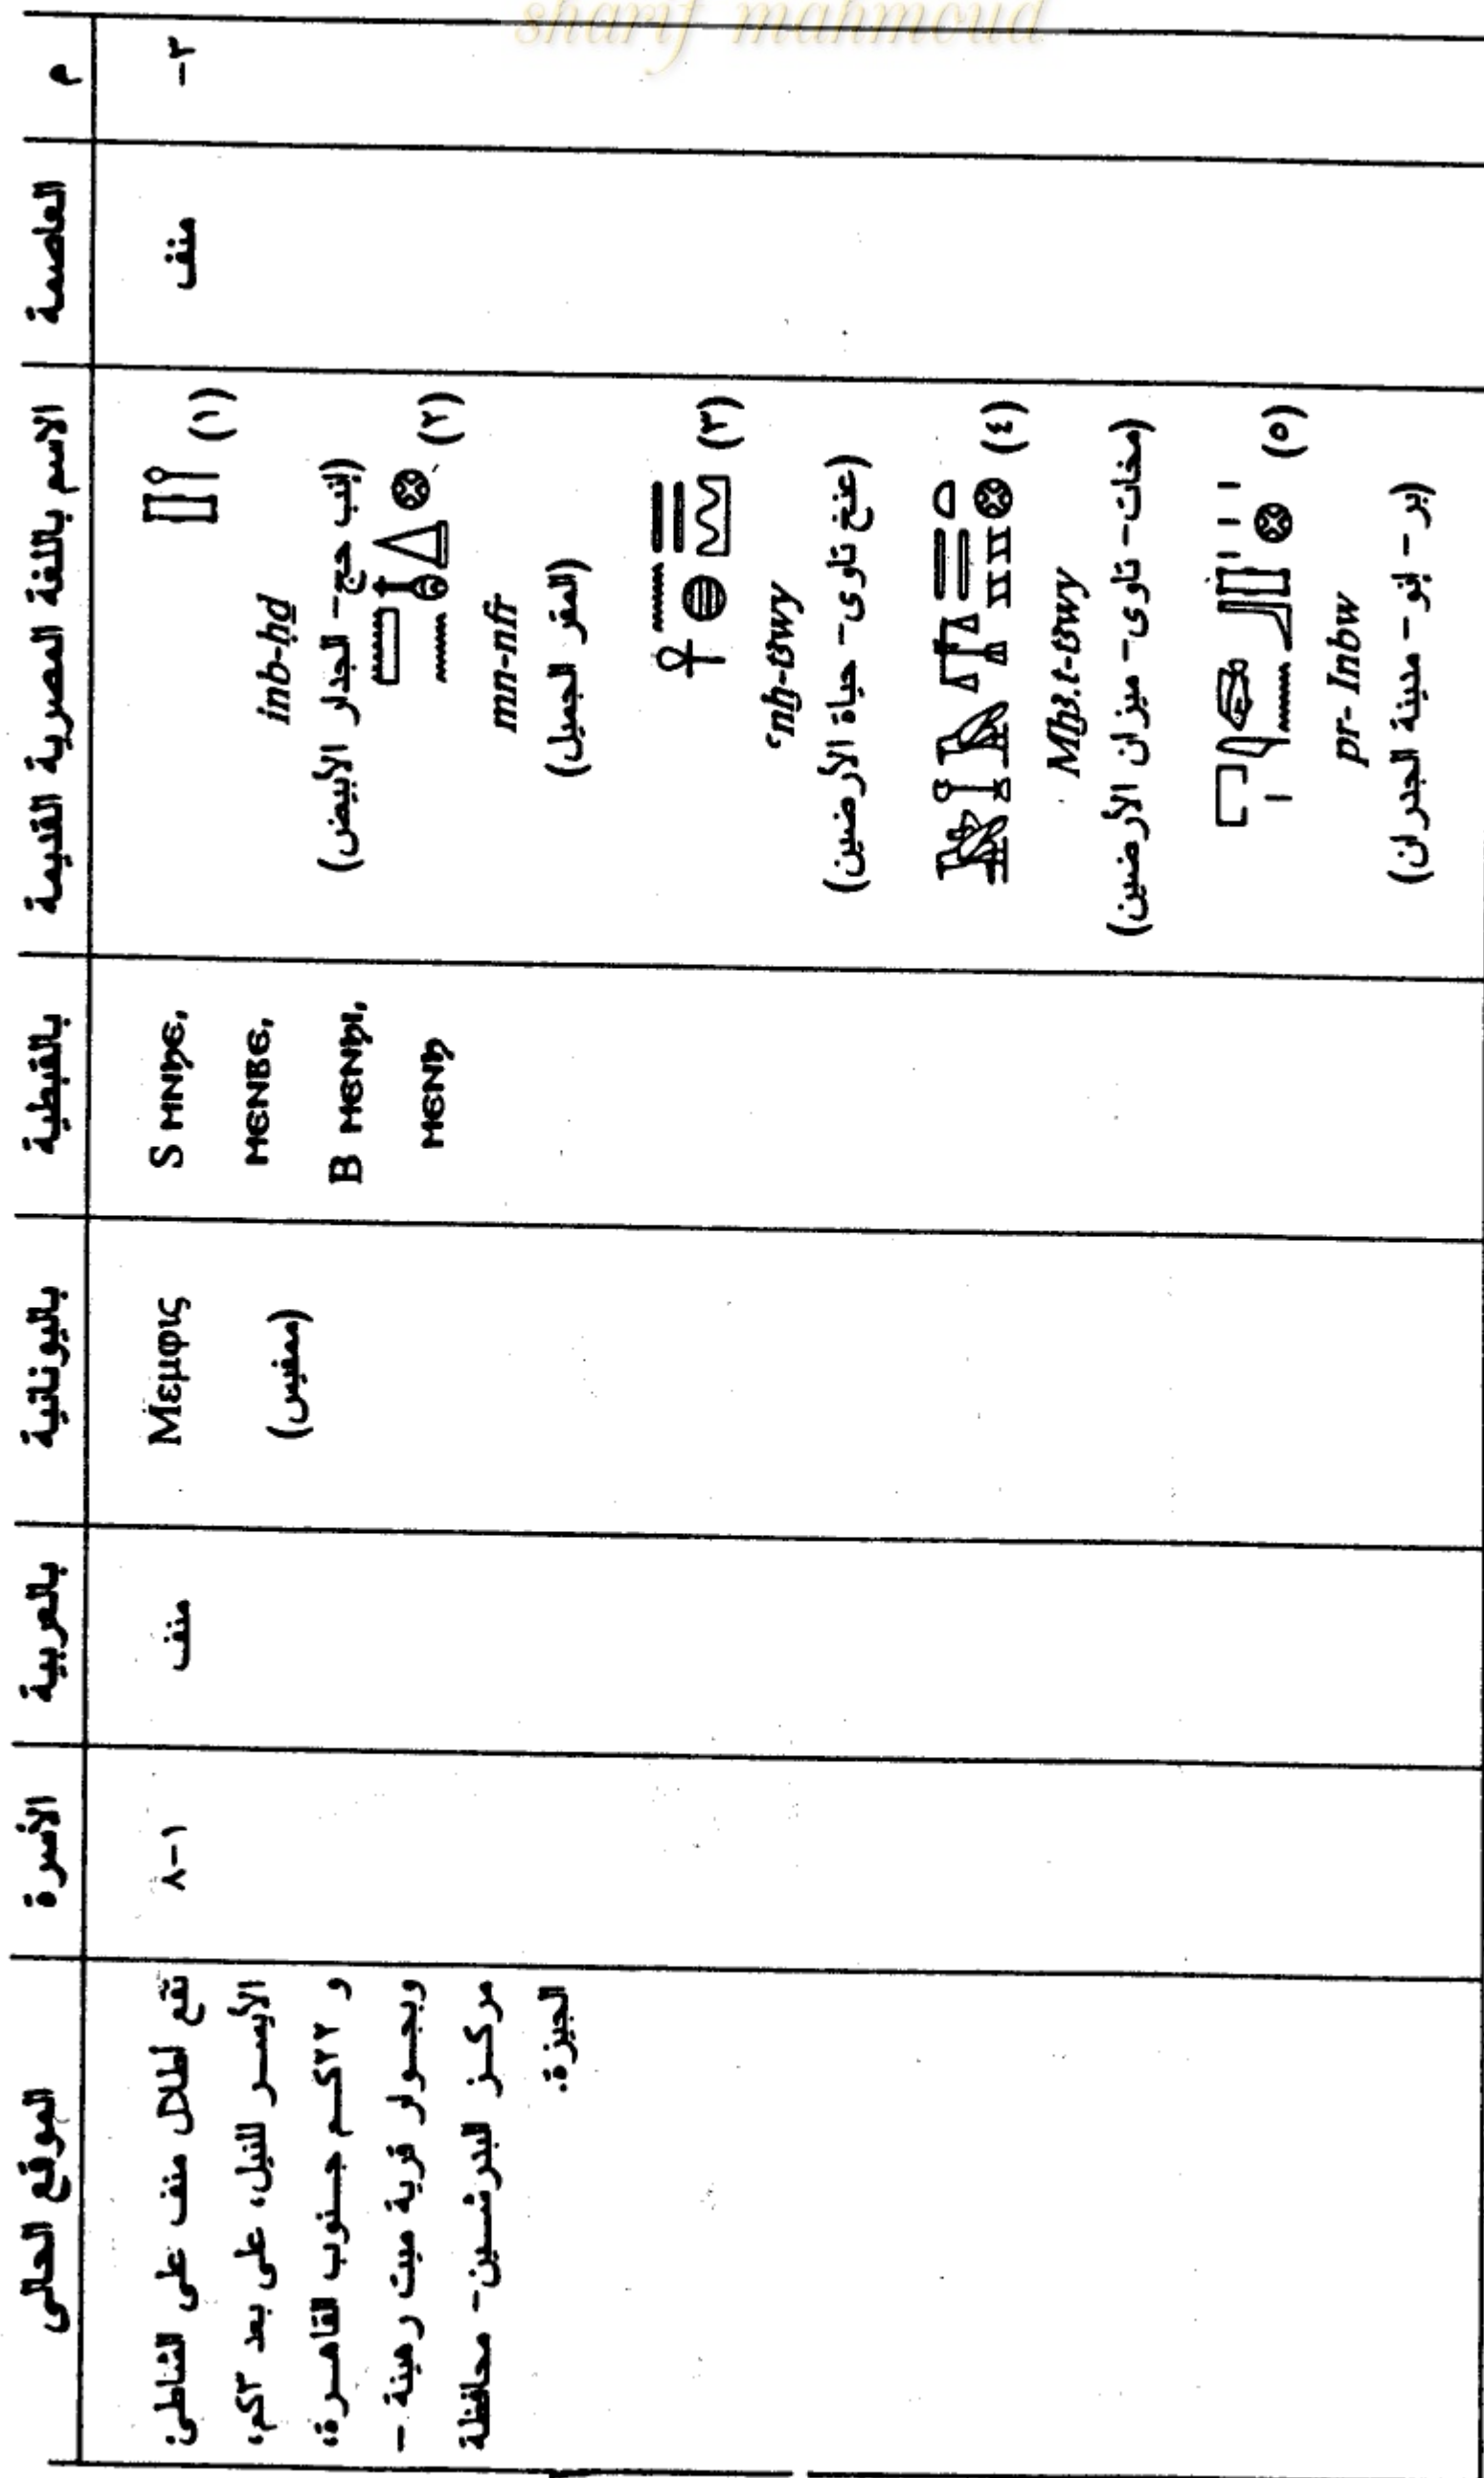 sharif mahmoud
م
العاصمة
الاسم باللغة المصرية القديمة
بالقبطية
باليونانية
بالعربية
الأسرة
الموقع الحالى
٣-
منف
(١)
inb-ḥḏ
(إنب حج - الجدار الأبيض)
(٢)
mn-nfr
(المقر الجميل)
(٣)
ꜥnḫ-tꜣwy
(عنخ تاوى - حياة الأرضين)
(٤)
Mḫꜣ.t-tꜣwy
(مخات - تاوى - ميزان الأرضين)
(٥)
pr- Inbw
(بر - إنو - مدينة الجدران)
S ⲙⲛϧⲉ,
ⲙⲉⲛⲃⲉ,
B ⲙⲉⲛϧⲓ,
ⲙⲉⲛϧ
Μεμφις
(ممفيس)
منف
١-٨
تقع أطلال منف على الشاطئ
الأيسر للنيل، على بعد ٣كم،
و ٢٢كم جنوب القاهرة،
وبجوار قرية ميت رهينة -
مركز البدرشين - محافظة
الجيزة.